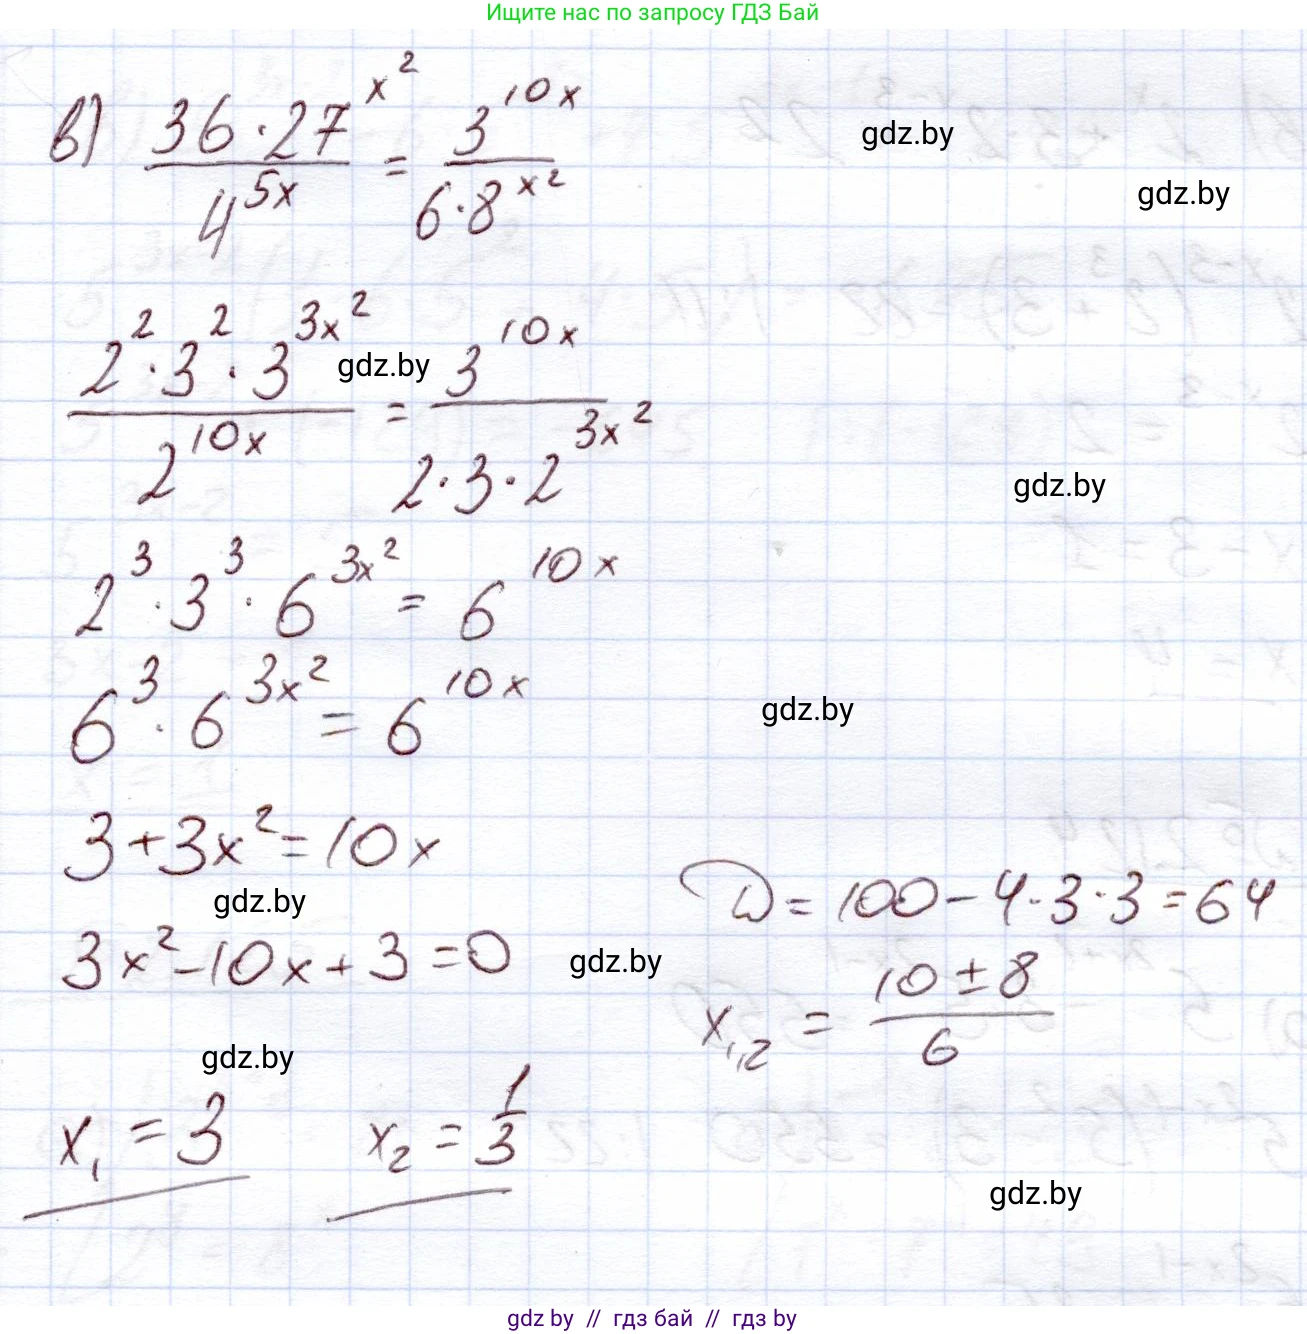 Ищите нас по запросу ГДЗ Бай
в) (36 · 27^(x²)) / 4^(5x) = 3^(10x) / (6 · 8^(x²))
gdz.by
gdz.by
(2² · 3² · 3^(3x²)) / 2^(10x) = 3^(10x) / (2 · 3 · 2^(3x²))
gdz.by
gdz.by
2³ · 3³ · 6^(3x²) = 6^(10x)
6³ · 6^(3x²) = 6^(10x)
gdz.by
3 + 3x² = 10x
gdz.by
D = 100 - 4 · 3 · 3 = 64
3x² - 10x + 3 = 0
gdz.by
x₁,₂ = (10 ± 8) / 6
gdz.by
x₁ = 3 x₂ = 1/3
gdz.by
gdz by // гдз бай // гдз by